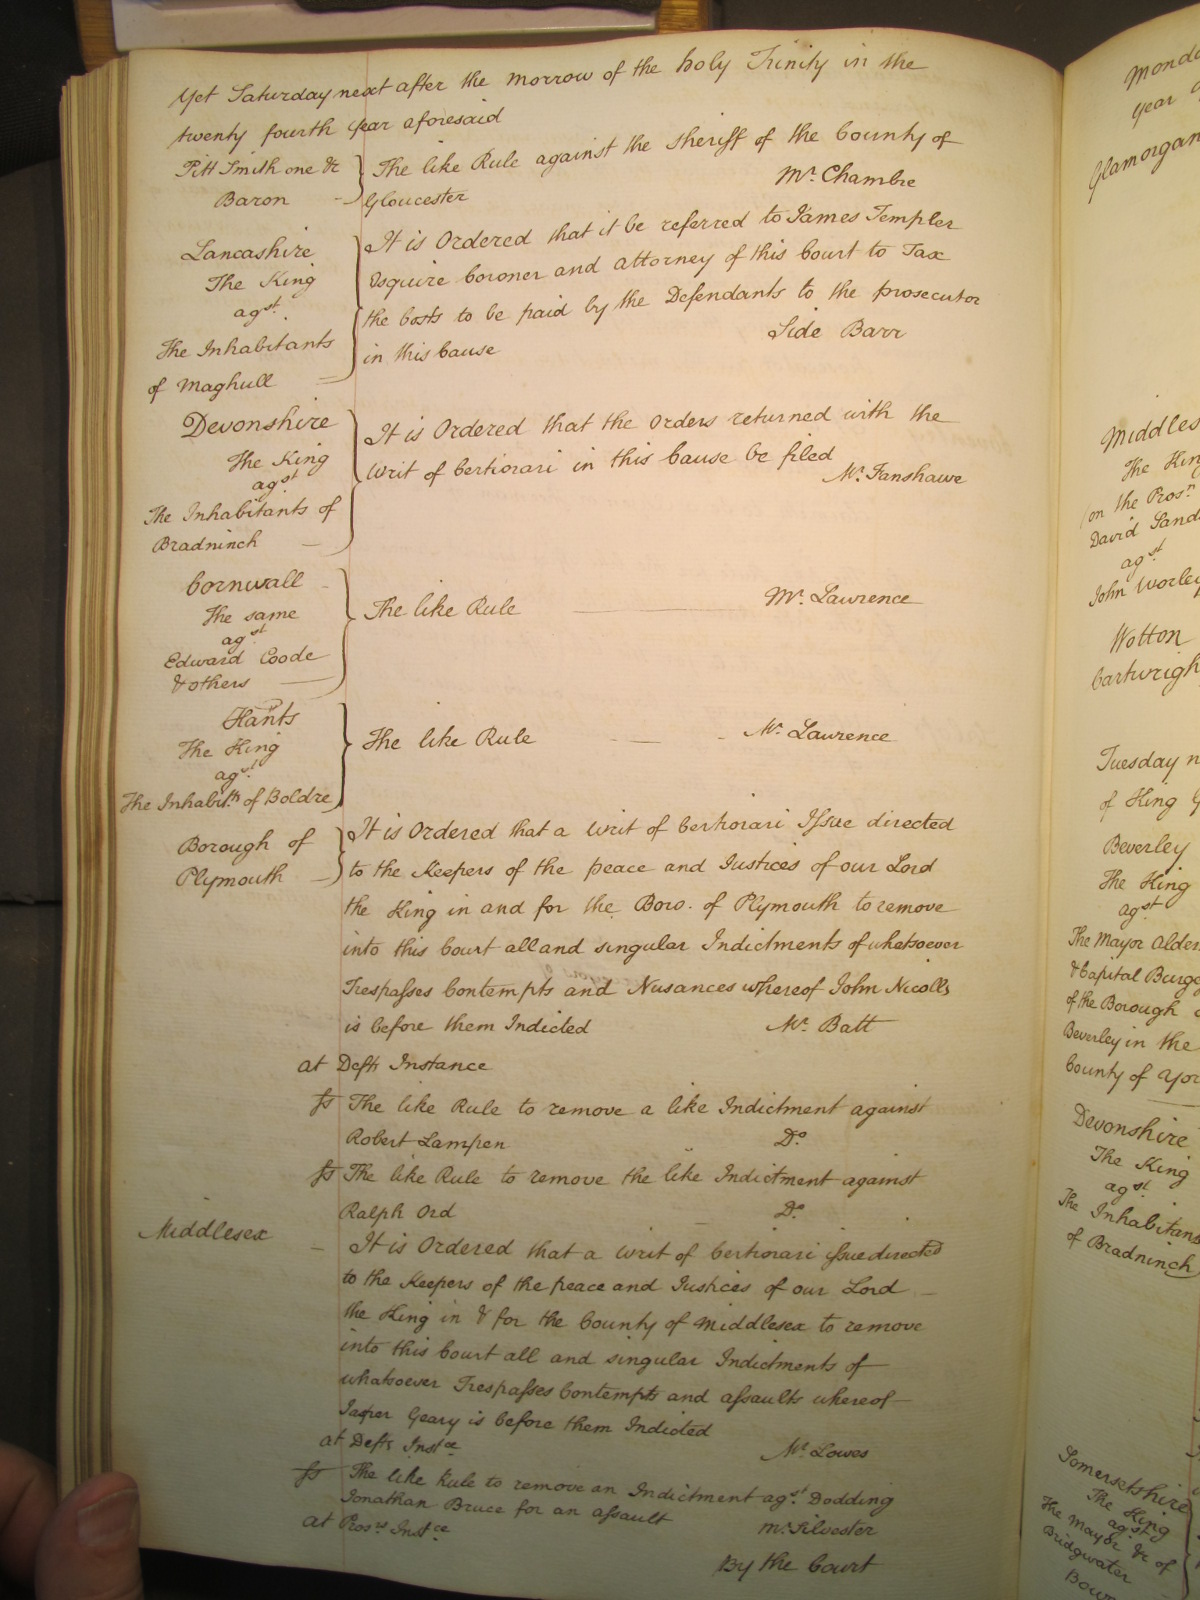 Yet Saturday next after the morrow of the holy Trinity in the
twenty fourth year aforesaid
Pitt Smith one &c
Baron
The like Rule against the Sheriff of the County of
Gloucester
Mr. Chambre
Lancashire
The King
agst.
The Inhabitants
of Maghull
It is Ordered that it be referred to James Templer
Esquire Coroner and Attorney of this Court to Tax
the Costs to be paid by the Defendants to the prosecutor
in this Cause
Side Barr
Devonshire
The King
agst
The Inhabitants of
Bradninch
It is Ordered that the Orders returned with the
Writ of Certiorari in this Cause be filed
Mr. Fanshawe
Cornwall
The same
agst
Edward Coode
& others
The like Rule
Mr. Lawrence
Hants
The King
agst
The Inhabitts of Boldre
The like Rule
Mr. Lawrence
Borough of
Plymouth
It is Ordered that a Writ of Certiorari Issue directed
to the Keepers of the peace and Justices of our Lord
the King in and for the Boro. of Plymouth to remove
into this Court all and singular Indictments of whatsoever
Trespasses Contempts and Nusances whereof John Nicolls
is before them Indicted
Mr. Batt
at Defts Instance
ss The like Rule to remove a like Indictment against
Robert Lampen
Do.
ss The like Rule to remove the like Indictment against
Ralph Ord
Do.
Middlesex
It is Ordered that a Writ of Certiorari issue directed
to the Keepers of the peace and Justices of our Lord
the King in & for the County of Middlesex to remove
into this Court all and singular Indictments of
whatsoever Trespasses Contempts and assaults whereof
Jasper Geary is before them Indicted
at Defts Instce
Mr. Lowes
ss The like Rule to remove an Indictment agst. Dodding
Jonathan Bruce for an assault
at Prosrs Instce
Mr. Silvester
By the Court
Monda
year
Glamorgan
Middles
The Kin
on the Prosn.
David Sand
agst.
John Worley
Wotton
Cartwrigh
Tuesday n
of King G
Beverley
The King
agst
The Mayor Alder
& Capital Burge
of the Borough
Beverley in the
County of Yor
Devonshire
The King
agst.
The Inhabitans
of Bradninch
Somersetshire
The King
agst
The Mayor &c of
Bridgwater